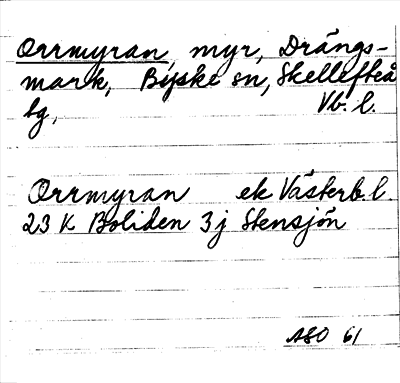 Orrmyran, myr, Drängs-
mark, Byske sn, Skellefteå
tg, Vb. l.
Orrmyran ek Västerb. l.
23 K Boliden 3 j Stensjön
ASO 61